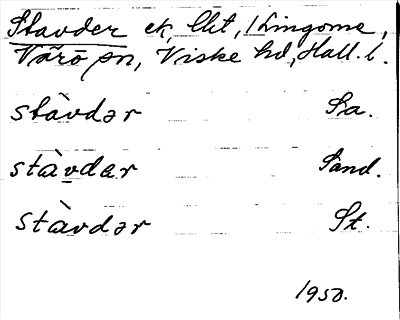 Stavder ek, Clit, 1 Lingome,
Värö sn, Viske hd, Hall. l.
stàvdər Sa.
stàvdær Sand.
stàvdər St.
1950.